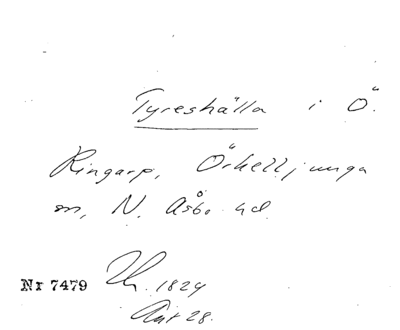 Tyreshälla i Ö.
Ringarp, Örkelljunga
sn, N. Åsbo hd.
Nr 7479 1824
28.